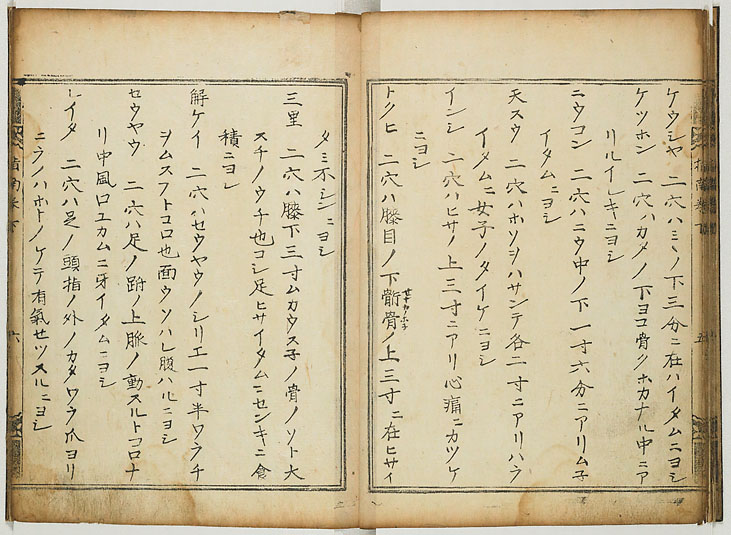 ケウシヤ 二穴ハミヽノ下三分ニ在ハイタムニヨシ
ケツホン 二穴ハカメノ下ヨコ骨クホカナル中ニア
リルイレキニヨシ
ニウコン 二穴ハニウ中ノ下一寸六分ニアリム子
イタムニヨシ
天スウ 二穴ハホソヲハサンテ各二寸ニアリハラ
イタムニ女子ノタイケニヨシ
インシ 二穴ハヒサノ上三寸ニアリ心痛ニカツケ
ニヨシ
トクヒ 二穴ハ膝目ノ下䯒骨ノ上三寸ニ在ヒサイ
タミ不シンニヨシ
三里 二穴ハ膝下三寸ムカウス子ノ骨ノソト大
スチノウチ也コシ足ヒサイタムニセンキニ食
積ニヨシ
解ケイ 二穴ハセウヤウノシリエ一寸半ワラチ
ヲムスフトコロ也面ウソハレ腹ハルニヨシ
セウヤウ 二穴ハ足ノ跗ノ上脈ノ動スルトコロナ
リ中風口ユカムニ牙イタムニヨシ
レイタ 二穴ハ足ノ頭指ノ外ノカタワラ爪ヨリ
ニラノハホトノケテ有氣せツスルニヨシ
指南巻下
五
指南巻下
六